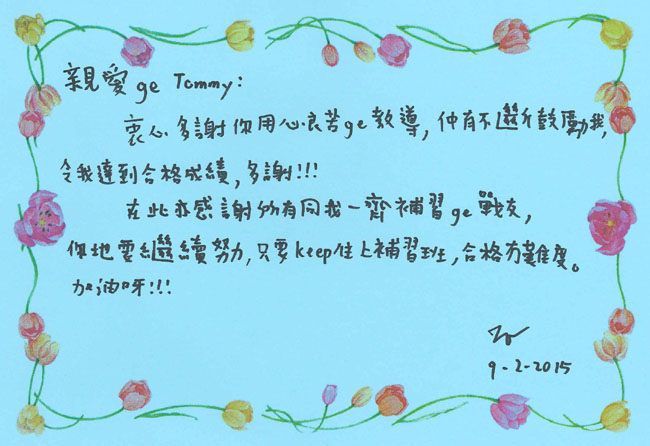 親愛ge Tommy:
衷心多謝你用心良苦ge教導, 仲有不繼斷鼓勵我,
令我達到合格成績, 多謝!!!
在此亦感謝所有同我一齊補習ge戰友,
你地要繼續努力, 只要keep住上補習班, 合格冇難度。
加油呀!!!
9-2-2015